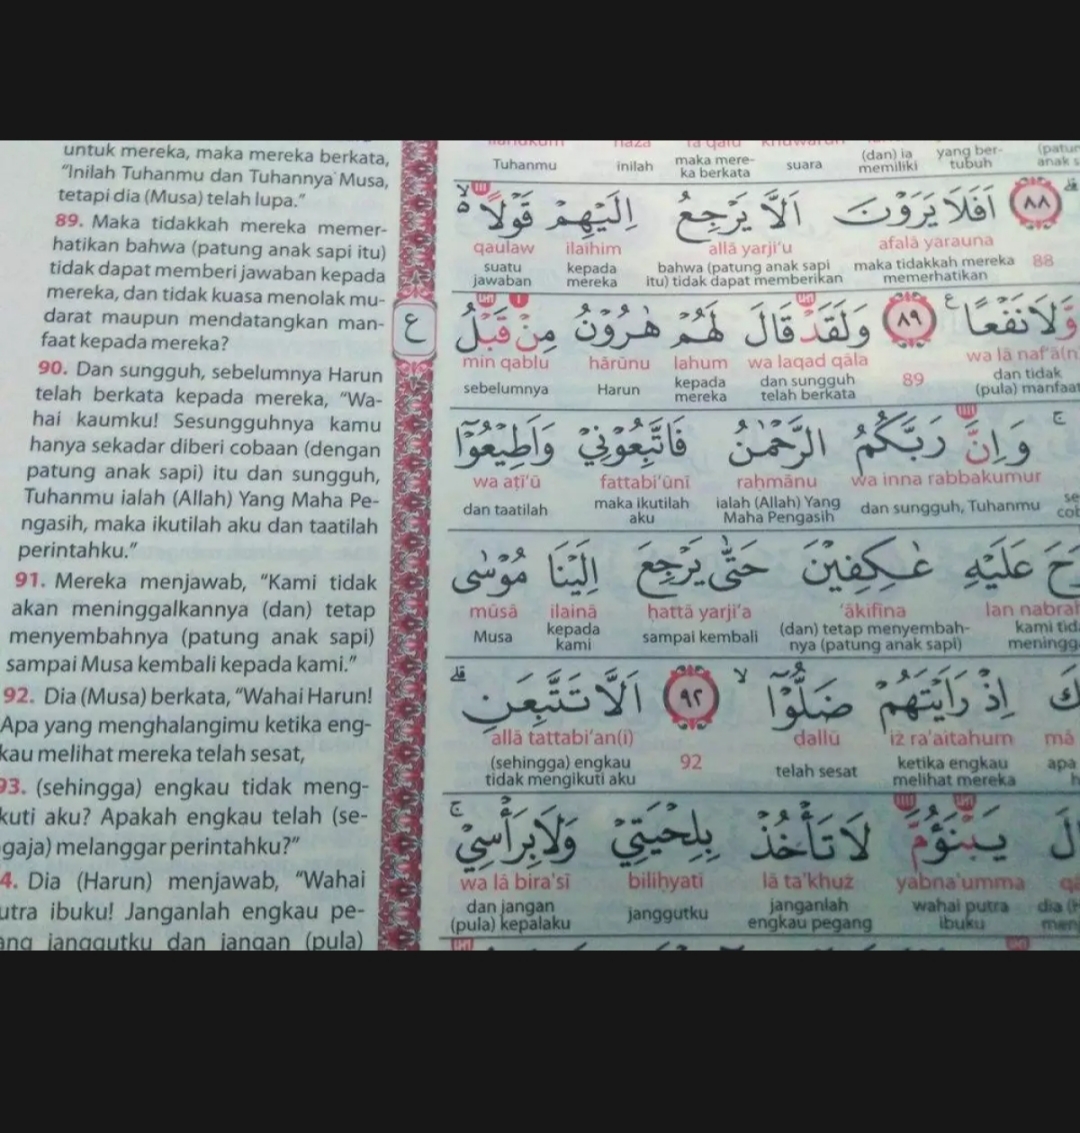 untuk mereka, maka mereka berkata,
“Inilah Tuhanmu dan Tuhannya Musa,
tetapi dia (Musa) telah lupa.”
89. Maka tidakkah mereka memer-
hatikan bahwa (patung anak sapi itu)
tidak dapat memberi jawaban kepada
mereka, dan tidak kuasa menolak mu-
darat maupun mendatangkan man-
faat kepada mereka?
90. Dan sungguh, sebelumnya Harun
telah berkata kepada mereka, “Wa-
hai kaumku! Sesungguhnya kamu
hanya sekadar diberi cobaan (dengan
patung anak sapi) itu dan sungguh,
Tuhanmu ialah (Allah) Yang Maha Pe-
ngasih, maka ikutilah aku dan taatilah
perintahku.”
91. Mereka menjawab, “Kami tidak
akan meninggalkannya (dan) tetap
menyembahnya (patung anak sapi)
sampai Musa kembali kepada kami.”
92. Dia (Musa) berkata, “Wahai Harun!
Apa yang menghalangimu ketika eng-
kau melihat mereka telah sesat,
93. (sehingga) engkau tidak meng-
kuti aku? Apakah engkau telah (se-
gaja) melanggar perintahku?”
4. Dia (Harun) menjawab, “Wahai
utra ibuku! Janganlah engkau pe-
ang janggutku dan jangan (pula)
ع
Tuhanmu inilah maka mere- suara (dan) ia yang ber- (patun
ka berkata memiliki tubuh anak s
٨٨ اَفَلَا يَرَوْنَ اَلَّا يَرْجِعُ اِلَيْهِمْ قَوْلًا ەۙ
qaulaw ilaihim allā yarji‘u afalā yarauna 88
suatu kepada bahwa (patung anak sapi maka tidakkah mereka
jawaban mereka itu) tidak dapat memberikan memerhatikan
وَّلَا نَفْعًا ࣖ ٨٩ وَلَقَدْ قَالَ لَهُمْ هٰرُوْنُ مِنْ قَبْلُ
min qablu hārūnu lahum wa laqad qāla 89 wa lā naf‘ā(n
sebelumnya Harun kepada dan sungguh dan tidak
mereka telah berkata (pula) manfaat
وَاِنَّ رَبَّكُمُ الرَّحْمٰنُ فَاتَّبِعُوْنِيْ وَاَطِيْعُوْٓا
wa aṭī‘ū fattabi‘ūnī raḥmānu wa inna rabbakumur
dan taatilah maka ikutilah ialah (Allah) Yang dan sungguh, Tuhanmu
aku Maha Pengasih
رَحَ عَلَيْهِ عٰكِفِيْنَ حَتّٰى يَرْجِعَ اِلَيْنَا مُوْسٰى
mūsā ilainā ḥattā yarji‘a ‘ākifīna lan nabraḥ
Musa kepada sampai kembali (dan) tetap menyembah- kami tid
kami nya (patung anak sapi) meningg
كَ اِذْ رَاَيْتَهُمْ ضَلُّوْٓا ۙ ٩٢ اَلَّا تَتَّبِعَنِ ۗ
allā tattabi‘an(i) 92 ḍallū iż ra'aitahum mā
(sehingga) engkau telah sesat ketika engkau apa
tidak mengikuti aku melihat mereka
لَ يَبْنَؤُمَّ لَا تَأْخُذْ بِلِحْيَتِيْ وَلَا بِرَأْسِيْ ۚ
wa lā bira'sī biliḥyatī lā ta'khuż yabna'umma
dan jangan janggutku janganlah wahai putra dia (H
(pula) kepalaku engkau pegang ibuku men